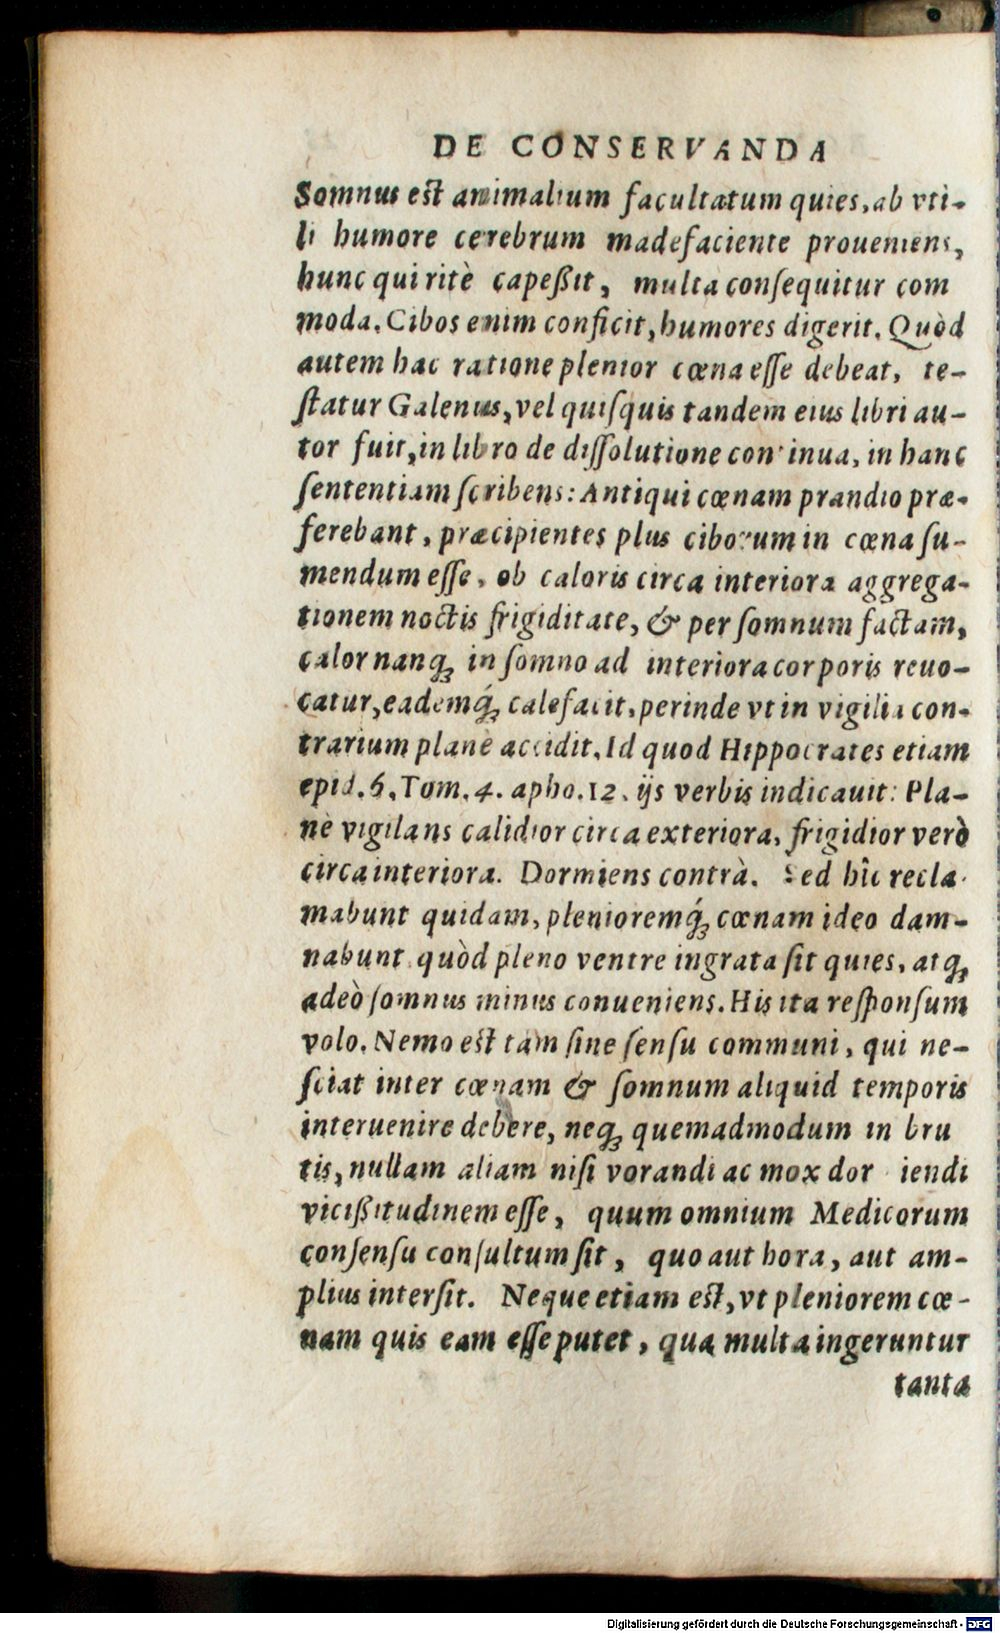 DE CONSERVANDA
Somnus est animalium facultatum quies, ab vti-
li humore cerebrum madefaciente proueniens,
hunc qui ritè capeßit, multa conſequitur com
moda. Cibos enim conficit, humores digerit. Quòd
autem hac ratione plenior cœna eſſe debeat, te-
ſtatur Galenus, vel quiſquis tandem eius libri au-
tor fuit, in libro de diſſolutione continua, in hanc
ſententiam ſcribens: Antiqui cœnam prandio præ-
ferebant, præcipientes plus ciborum in cœna ſu-
mendum eſſe, ob caloris circa interiora aggrega-
tionem noctis frigiditate, & per ſomnum factam,
calor nanq́ꝫ in ſomno ad interiora corporis reuo-
catur, eademq́ꝫ calefacit, perinde vt in vigilia con-
trarium planè accidit. Id quod Hippocrates etiam
epid. 6. Tom. 4. apho. 12. ijs verbis indicauit: Pla-
nè vigilans calidior circa exteriora, frigidior verò
circa interiora. Dormiens contrà. Sed hîc recla-
mabunt quidam, plenioremq́ꝫ cœnam ideo dam-
nabunt quòd pleno ventre ingrata ſit quies, atqꝫ
adeò ſomnus minus conueniens. His ita reſponſum
volo. Nemo est tam ſine ſenſu communi, qui ne-
ſciat inter cœnam & ſomnum aliquid temporis
interuenire debere, neqꝫ quemadmodum in bru
tis, nullam aliam niſi vorandi ac mox dor iendi
vicißitudinem eſſe, quum omnium Medicorum
conſenſu conſultum ſit, quo aut hora, aut am-
plius interſit. Neque etiam est, vt pleniorem cœ-
nam quis eam eſſe putet, qua multa ingeruntur
tanta
Digitalisierung gefördert durch die Deutsche Forschungsgemeinschaft - DFG